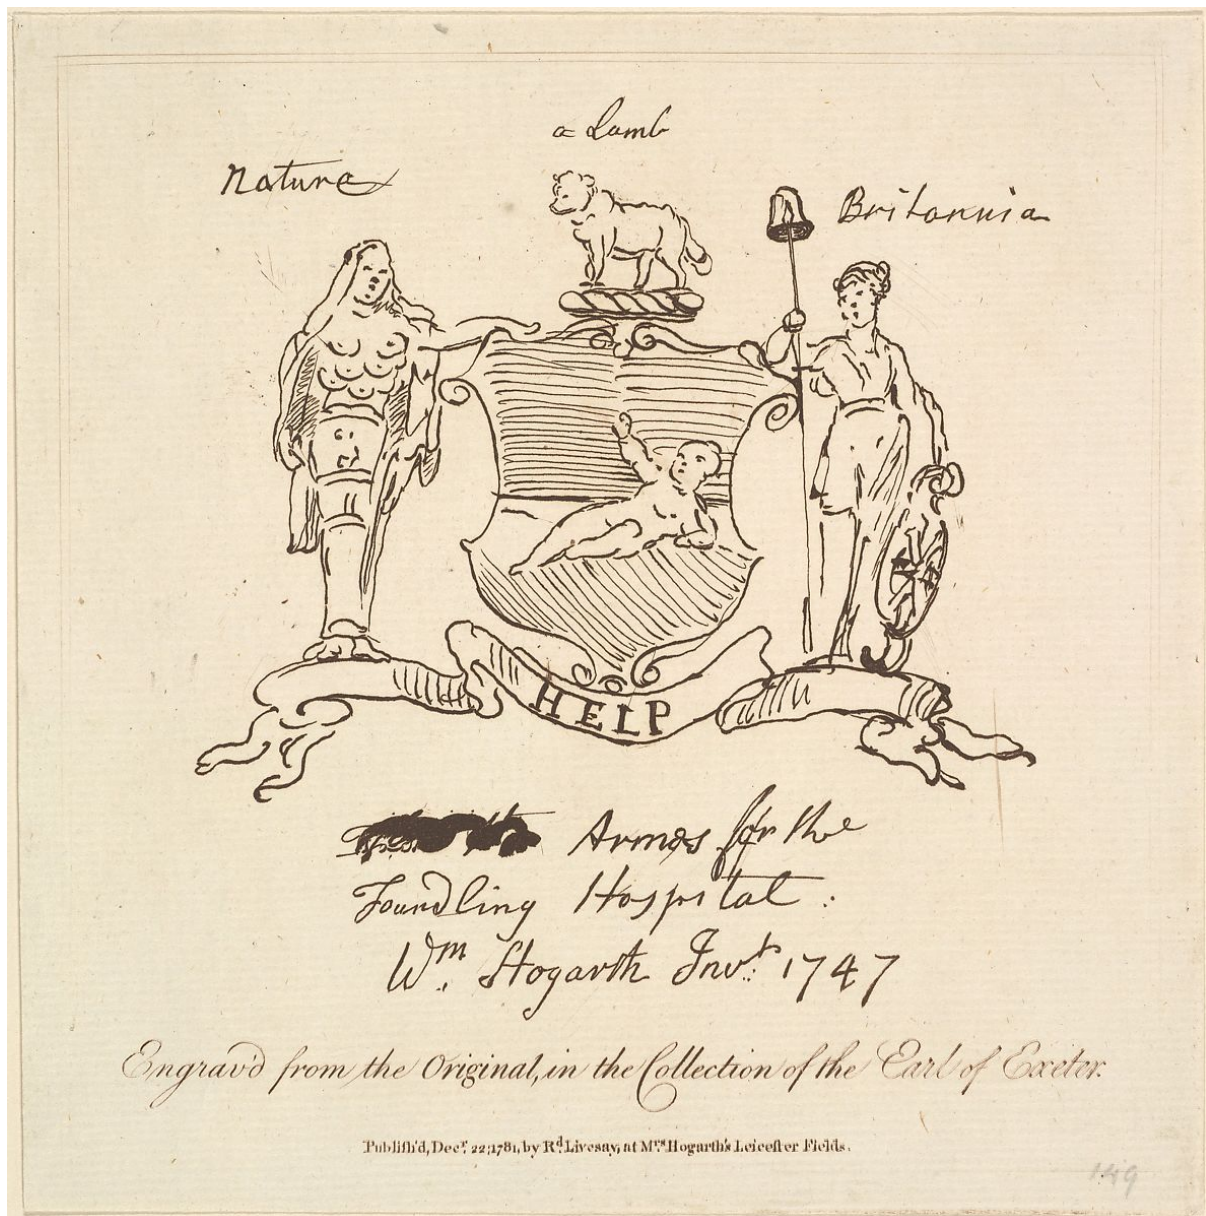 a Lamb
Nature
Britannia
HELP
Armes for the
Foundling Hospital :
Wm. Hogarth Invt. 1747
Engrav'd from the Original, in the Collection of the Earl of Exeter.
Publish'd, Decr. 22; 1781, by Rd. Livesay, at Mrs. Hogarth's Leicester Fields.
149